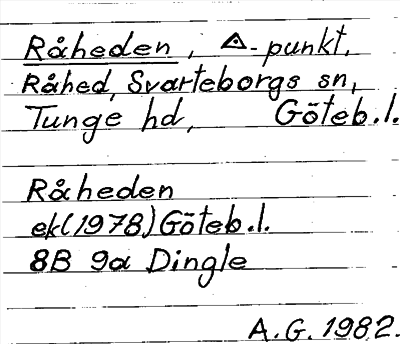 Råheden, △-punkt,
Råhed, Svarteborgs sn,
Tunge hd, Göteb.l.
Råheden
ek(1978)Göteb.l.
8B 9a Dingle
A.G. 1982.